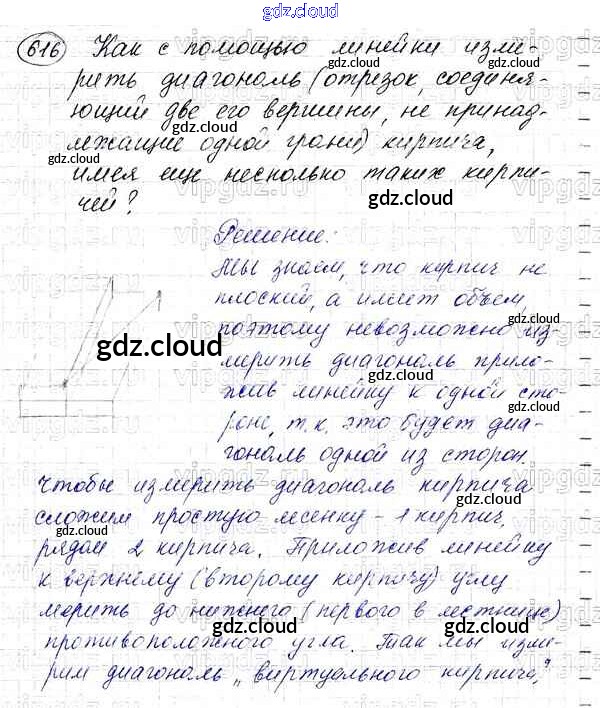 gdz.cloud
616 Как с помощью линейки изме-
рить диагональ (отрезок, соединя-
ющий две его вершины, не принад-
лежащие одной грани) кирпича,
имея еще несколько таких кирпи-
чей?
Решение:
Мы знаем, что кирпич не
плоский, а имеет объем,
поэтому невозможно из-
мерить диагональ прило-
жив линейку к одной сто-
роне, т.к. это будет диа-
гональ одной из сторон.
Чтобы измерить диагональ кирпича
сложим простую лесенку - 1 кирпич,
рядом 2 кирпича. Приложив линейку
к верхнему (второму кирпичу) углу
мерить до нижнего (первого в лестнице)
противоположного угла. Так мы изме-
рим диагональ "виртуального кирпича".